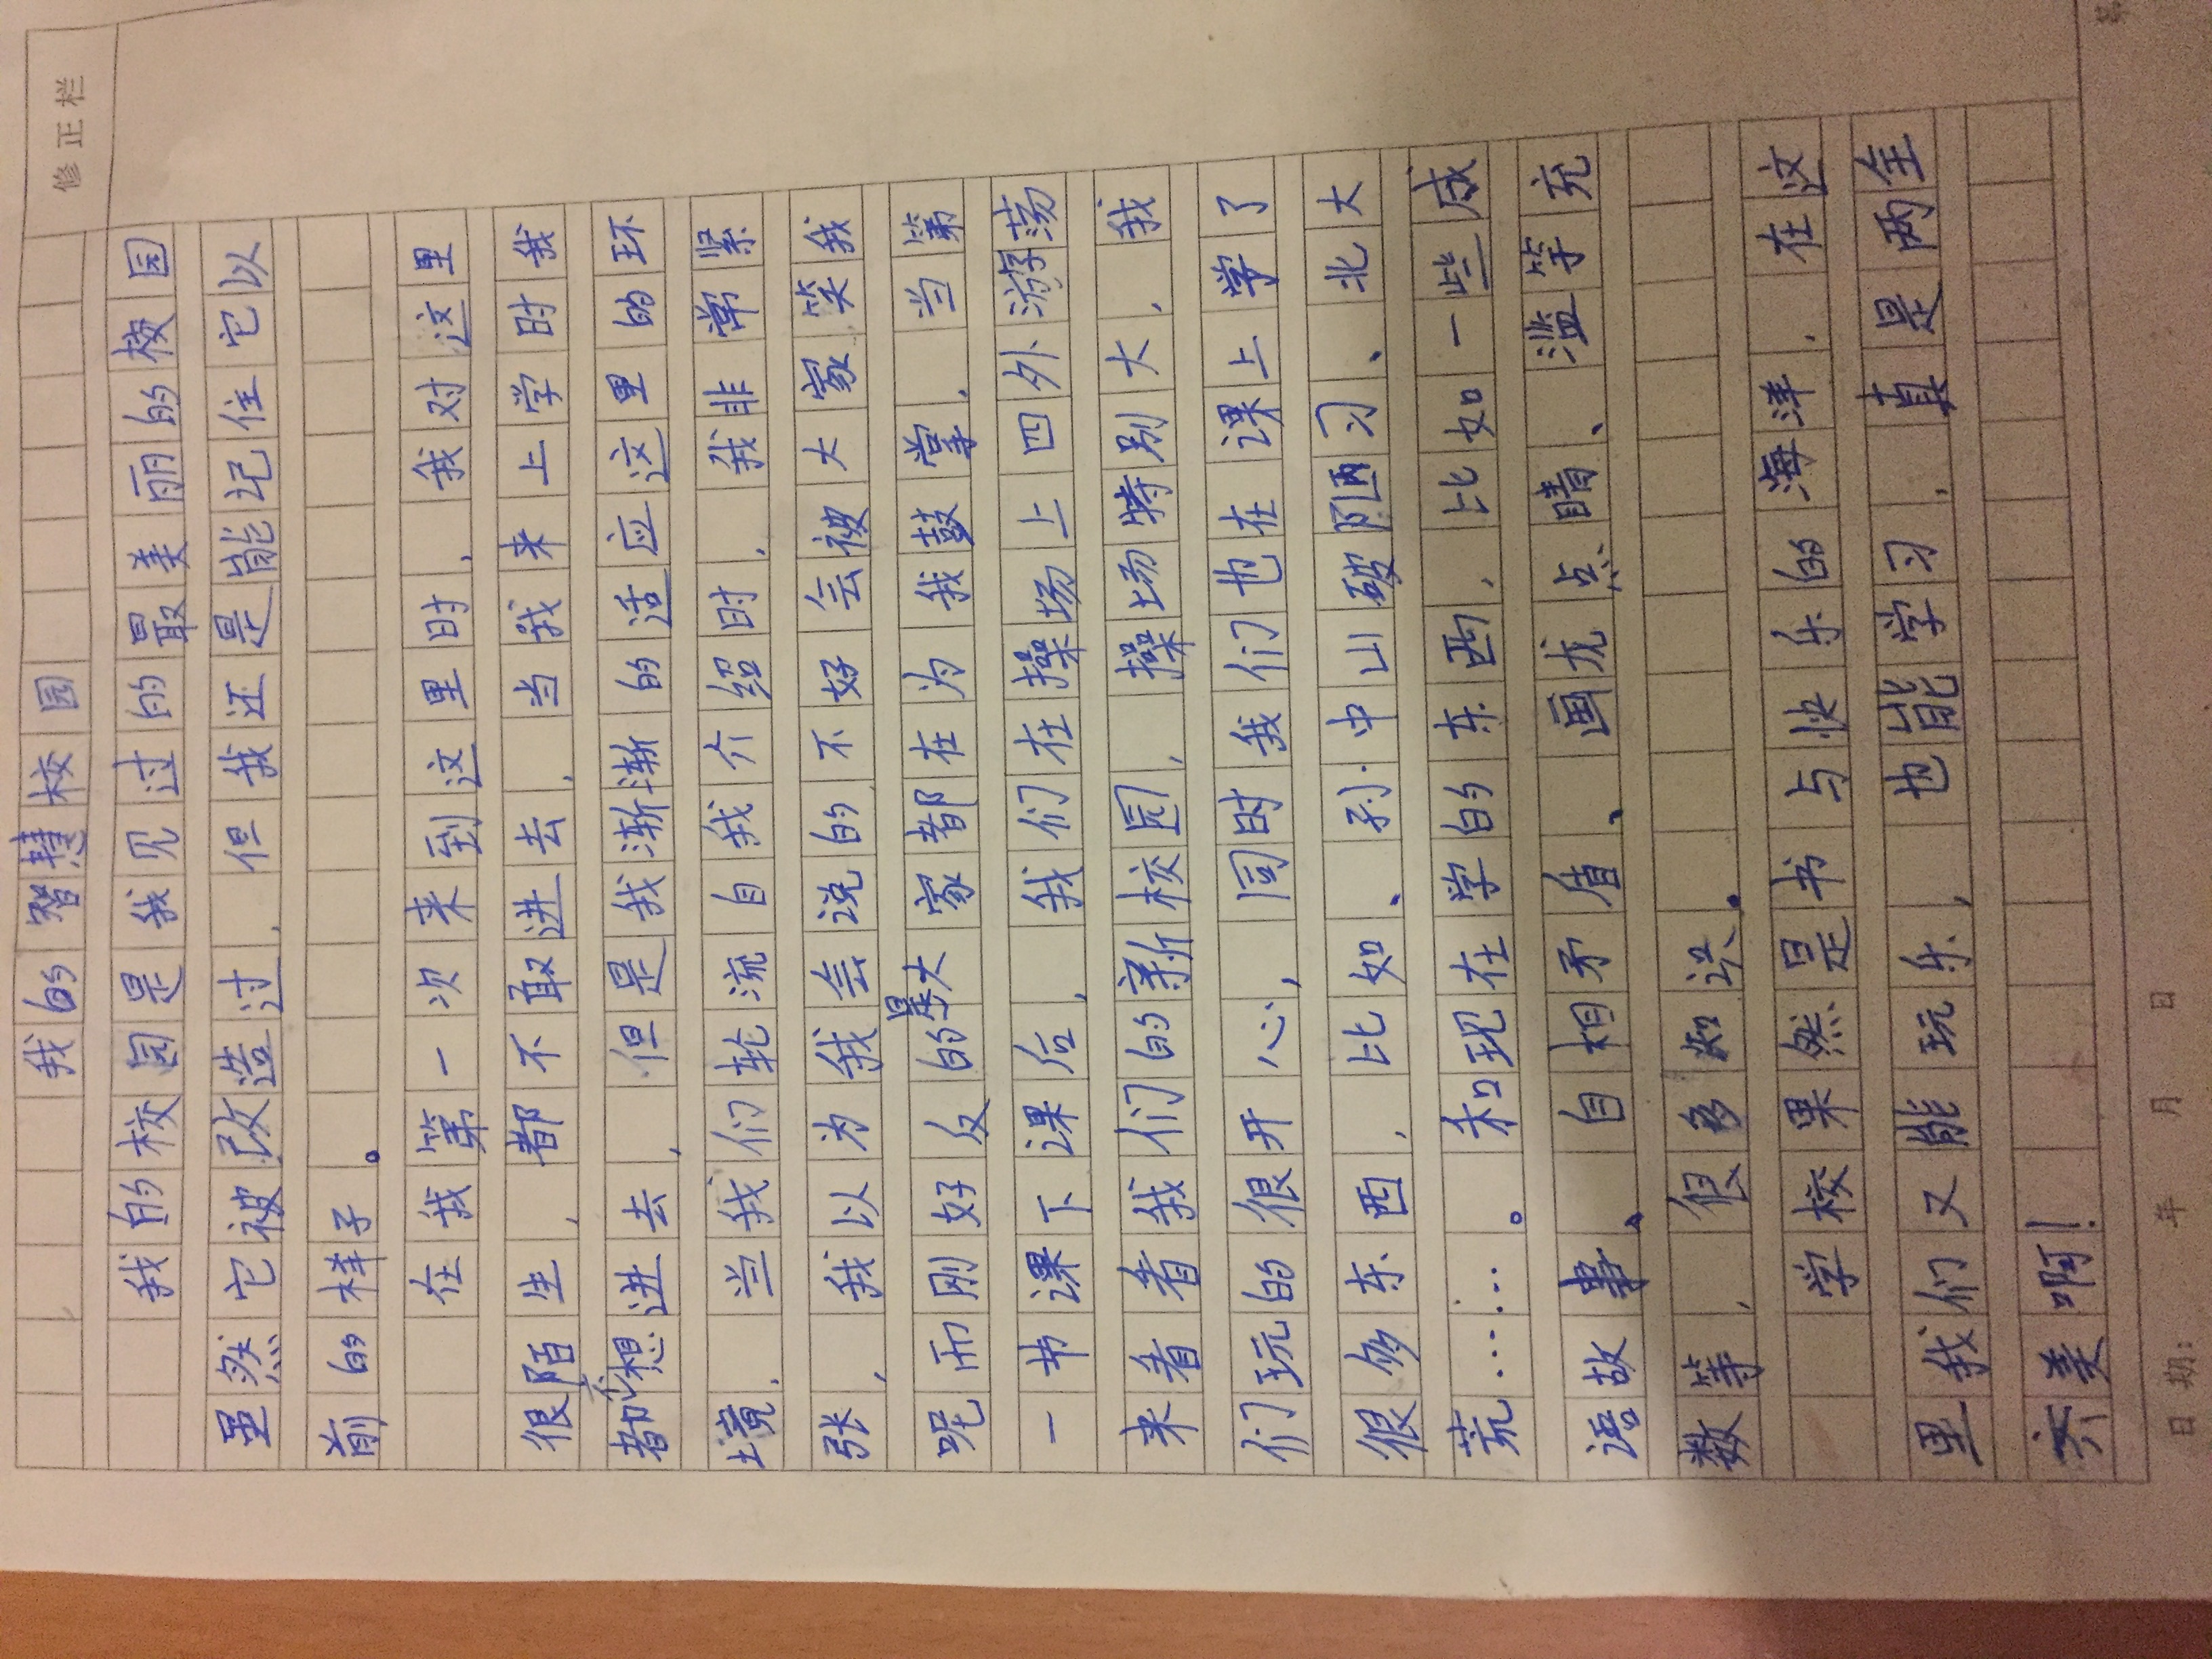 修正栏
我的智慧校园
我的校园是我见过的最美丽的校园
虽然它被改造过，但我还是能记住它以
前的样子。
在我第一次来到这里时，我对这里
很陌生，都不敢进去，当我来上学时我
都不想进去，但是我渐渐的适应这里的环
境，当我们轮流自我介绍时，我非常紧
张，我以为我会说的不好会被大家笑我
呢而刚好反的是大家都在为我鼓掌，当第
一节课下课后，我们在操场上四外游荡
来看看我们的新校园，操场特别大，我
们玩的很开心，同时我们也在课上学了
很多东西，比如、孙中山破陋习、北大
荒……。和现在学的东西，比如一些成
语故事、自相矛盾、画龙点睛、滥竽充
数等，很多知识。
学校果然是书与快乐的海洋，在这
里我们又能玩乐，也能学习，真是两全
齐美啊！
日期： 年 月 日